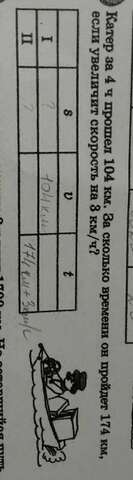 Катер за 4 ч прошел 104 км. За сколько времени он пройдет 174 км,
если увеличит скорость на 3 км/ч?
s v t
I ? 104км
II ? 174км+3км/ч